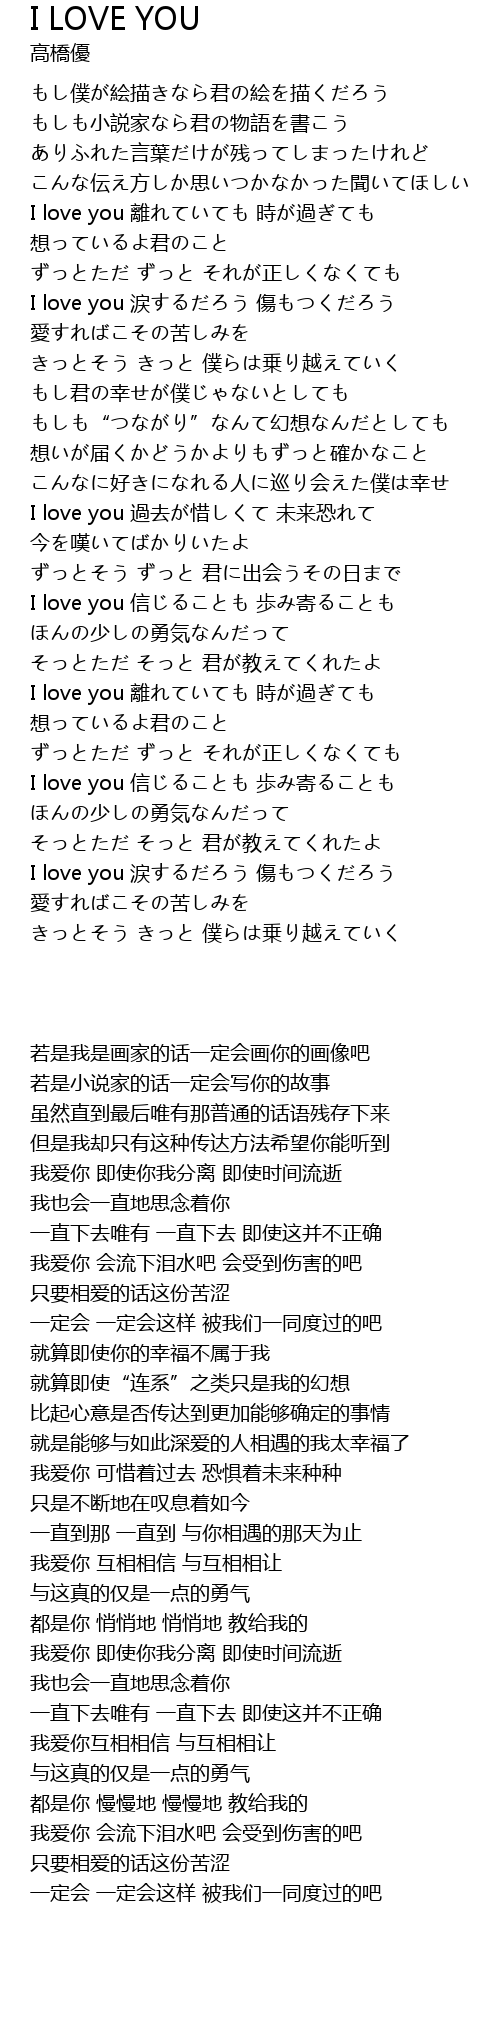 I LOVE YOU
高橋優
もし僕が絵描きなら君の絵を描くだろう
もしも小説家なら君の物語を書こう
ありふれた言葉だけが残ってしまったけれど
こんな伝え方しか思いつかなかった聞いてほしい
I love you 離れていても 時が過ぎても
想っているよ君のこと
ずっとただ ずっと それが正しくなくても
I love you 涙するだろう 傷もつくだろう
愛すればこその苦しみを
きっとそう きっと 僕らは乗り越えていく
もし君の幸せが僕じゃないとしても
もしも“つながり”なんて幻想なんだとしても
想いが届くかどうかよりもずっと確かなこと
こんなに好きになれる人に巡り会えた僕は幸せ
I love you 過去が惜しくて 未来恐れて
今を嘆いてばかりいたよ
ずっとそう ずっと 君に出会うその日まで
I love you 信じることも 歩み寄ることも
ほんの少しの勇気なんだって
そっとただ そっと 君が教えてくれたよ
I love you 離れていても 時が過ぎても
想っているよ君のこと
ずっとただ ずっと それが正しくなくても
I love you 信じることも 歩み寄ることも
ほんの少しの勇気なんだって
そっとただ そっと 君が教えてくれたよ
I love you 涙するだろう 傷もつくだろう
愛すればこその苦しみを
きっとそう きっと 僕らは乗り越えていく
若是我是画家的话一定会画你的画像吧
若是小说家的话一定会写你的故事
虽然直到最后唯有那普通的话语残存下来
但是我却只有这种传达方法希望你能听到
我爱你 即使你我分离 即使时间流逝
我也会一直地思念着你
一直下去唯有 一直下去 即使这并不正确
我爱你 会流下泪水吧 会受到伤害的吧
只要相爱的话这份苦涩
一定会 一定会这样 被我们一同度过的吧
就算即使你的幸福不属于我
就算即使“连系”之类只是我的幻想
比起心意是否传达到更加能够确定的事情
就是能够与如此深爱的人相遇的我太幸福了
我爱你 可惜着过去 恐惧着未来种种
只是不断地在叹息着如今
一直到那 一直到 与你相遇的那天为止
我爱你 互相相信 与互相相让
与这真的仅是一点的勇气
都是你 悄悄地 悄悄地 教给我的
我爱你 即使你我分离 即使时间流逝
我也会一直地思念着你
一直下去唯有 一直下去 即使这并不正确
我爱你互相相信 与互相相让
与这真的仅是一点的勇气
都是你 慢慢地 慢慢地 教给我的
我爱你 会流下泪水吧 会受到伤害的吧
只要相爱的话这份苦涩
一定会 一定会这样 被我们一同度过的吧